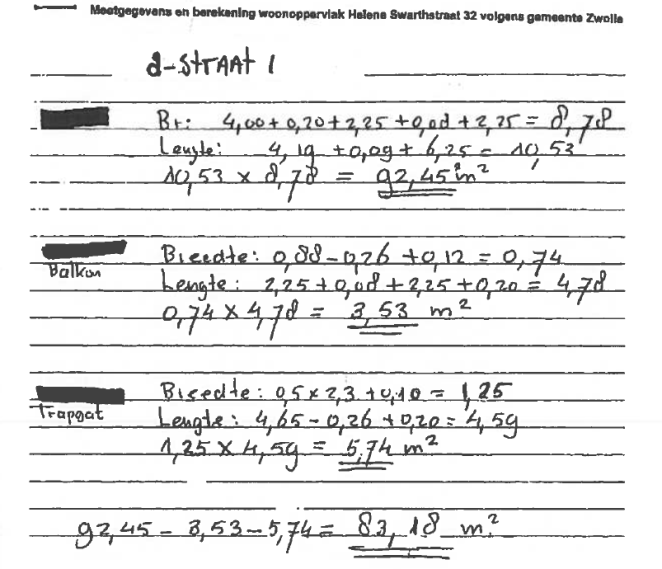 Meetgegevens en berekening woonoppervlak Helene Swarthstraat 32 volgens gemeente Zwolle
d-STRAAT 1
Br: 4,00 + 0,20 + 2,25 + 0,08 + 2,25 = 8,78
Lengte: 4,19 + 0,09 + 6,25 = 10,53
10,53 x 8,78 = 92,45 m²
Breedte: 0,88 - 0,26 + 0,12 = 0,74
Balkon
Lengte: 2,25 + 0,08 + 2,25 + 0,20 = 4,78
0,74 x 4,78 = 3,53 m²
Breedte: 0,5 x 2,3 + 0,10 = 1,25
Trapgat
Lengte: 4,65 - 0,26 + 0,20 = 4,59
1,25 x 4,59 = 5,74 m²
92,45 - 3,53 - 5,74 = 83,18 m²